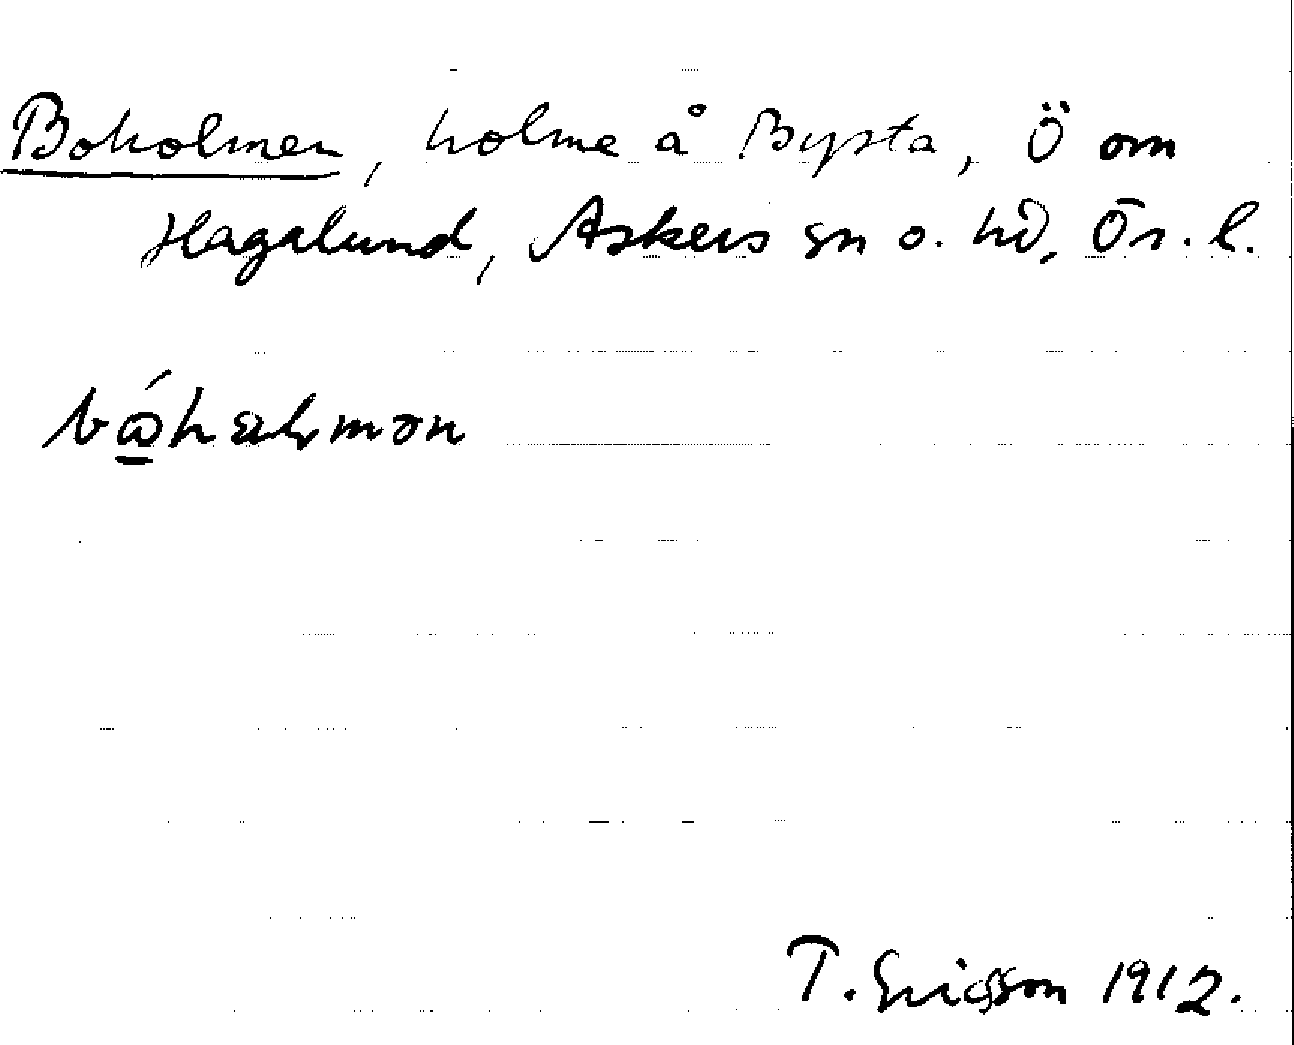 Boholmen, holme å Bysta, Ö om
Hagalund, Askers sn o. hd, Ör. l.
T. Ericsson 1912.